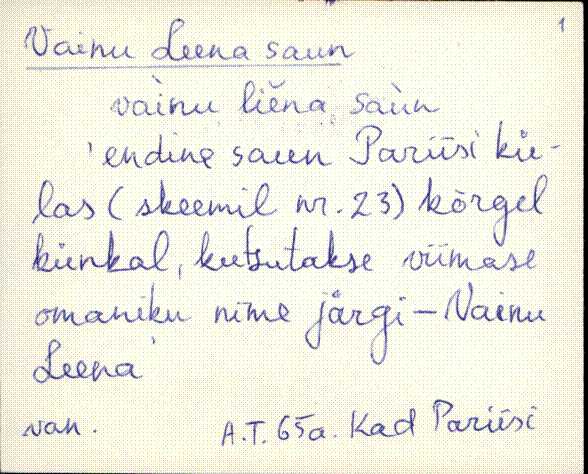 1
Vainu Leena saun
vàinu liena saùn
'endine saun Pariisi kü-
las (skeemil nr. 23) kõrgel
künkal, kutsutakse viimase
omaniku nime järgi – Vainu
Leena'
van. A.T. 65a. Kad Pariisi